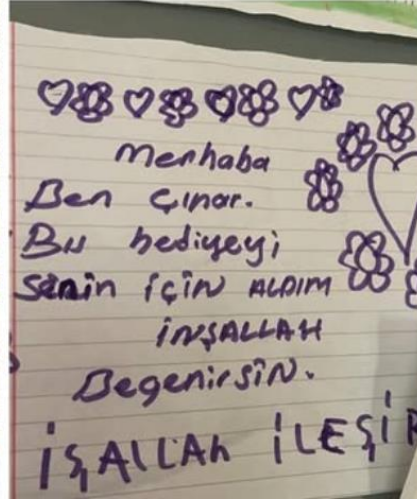 Merhaba
Ben Çınar.
Bu hediyeyi
senin için ALDIM
İNŞALLAH
Begenirsin.
İŞALLAh İLEŞİ